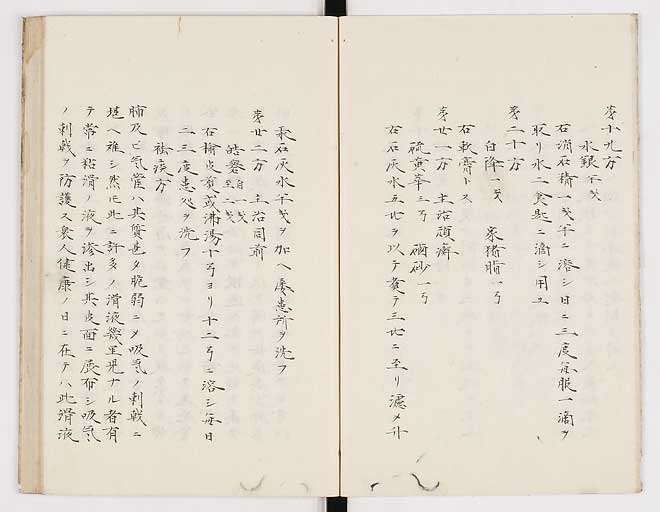 第十九方
水銀 半戔
右消石精一戔半ニ溶シ日ニ三度每服一滴ヲ
取リ水二食匙ニ滴シ用ユ
第二十方
白降 一戔 家猪脂 一弓
右軟膏トス
第廿一方 主治頑癬
硫黄華 三弓 硇砂 一弓
右石灰水五匕ヲ以テ煑テ三匕ニ至リ濾メ升
汞石灰水半戔ヲ加ヘ屡患所ヲ洗フ
第廿二方 主治同前
皓礬 自一戔至二戔
右楡皮煑或沸湯十弓ヨリ十二弓ニ溶シ每日
二三度患処ヲ洗フ
祛痰方
肺及ヒ気管ハ其質甚タ脆弱ニメ吸気ノ刺戟ニ
堪ヘ難シ然𪜈此ニ許多ノ滑液幾里児ナル者有
テ常ニ粘滑ノ液ヲ滲出シ其皮面ニ展布シ吸気
ノ刺戟ヲ防護ス衆人健康ノ日ニ在テハ此滑液